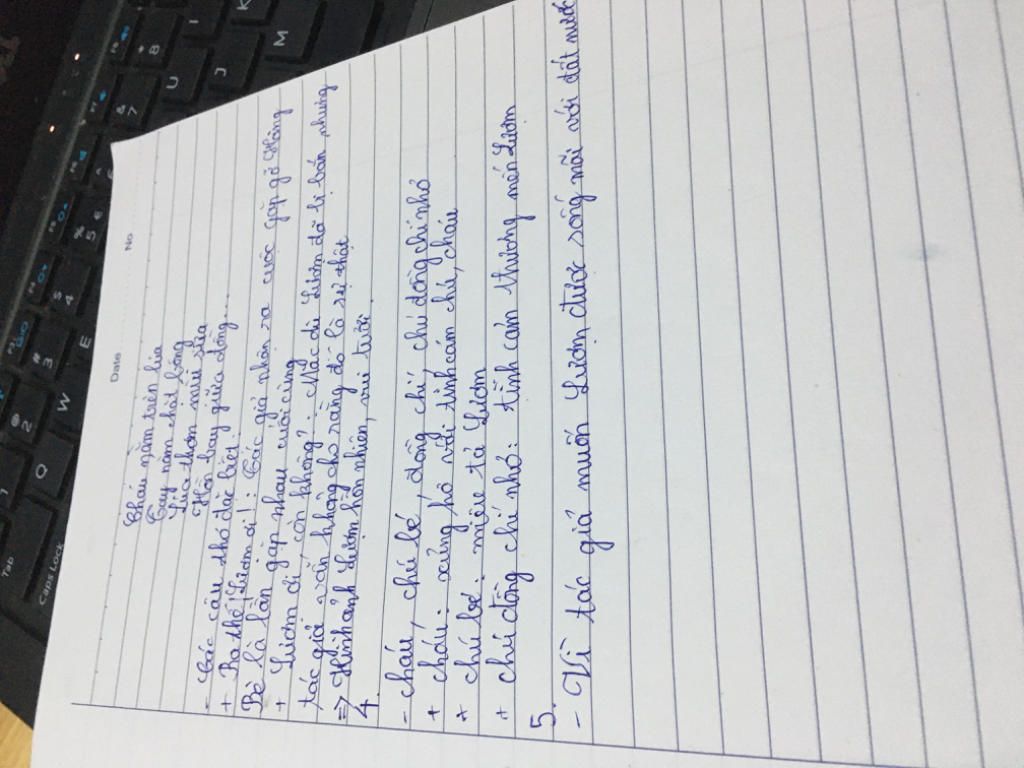 Date No
Cháu nằm trên lúa
Tay nắm chặt bông
Lúa thơm mùi sữa
Hồn bay giữa đồng...
- Các câu thơ đặc biệt.
+ Ra thế Lượm ơi! : Tác giả nhận ra cuộc gặp gỡ Hàng
Bè là lần gặp nhau cuối cùng
+ Lượm ơi còn không? : Mặc dù Lượm đã hi bán nhưng
tác giả vẫn không cho rằng đó là sự thật
=> Hình ảnh Lượm hồn nhiên, vui tươi
4.
- cháu, chú bé, đồng chí, chú đồng chí nhỏ
+ cháu : xưng hô với tình cảm chú, cháu
+ chú bé : miêu tả Lượm
+ chú đồng chí nhỏ : tình cảm thương mến Lượm
5.
- Vì tác giả muốn Lượm được sống mãi với đất nước
Tab
Caps Lock
Q
W
E
U
I
J
K
M
2
3
4
5
6
7
8